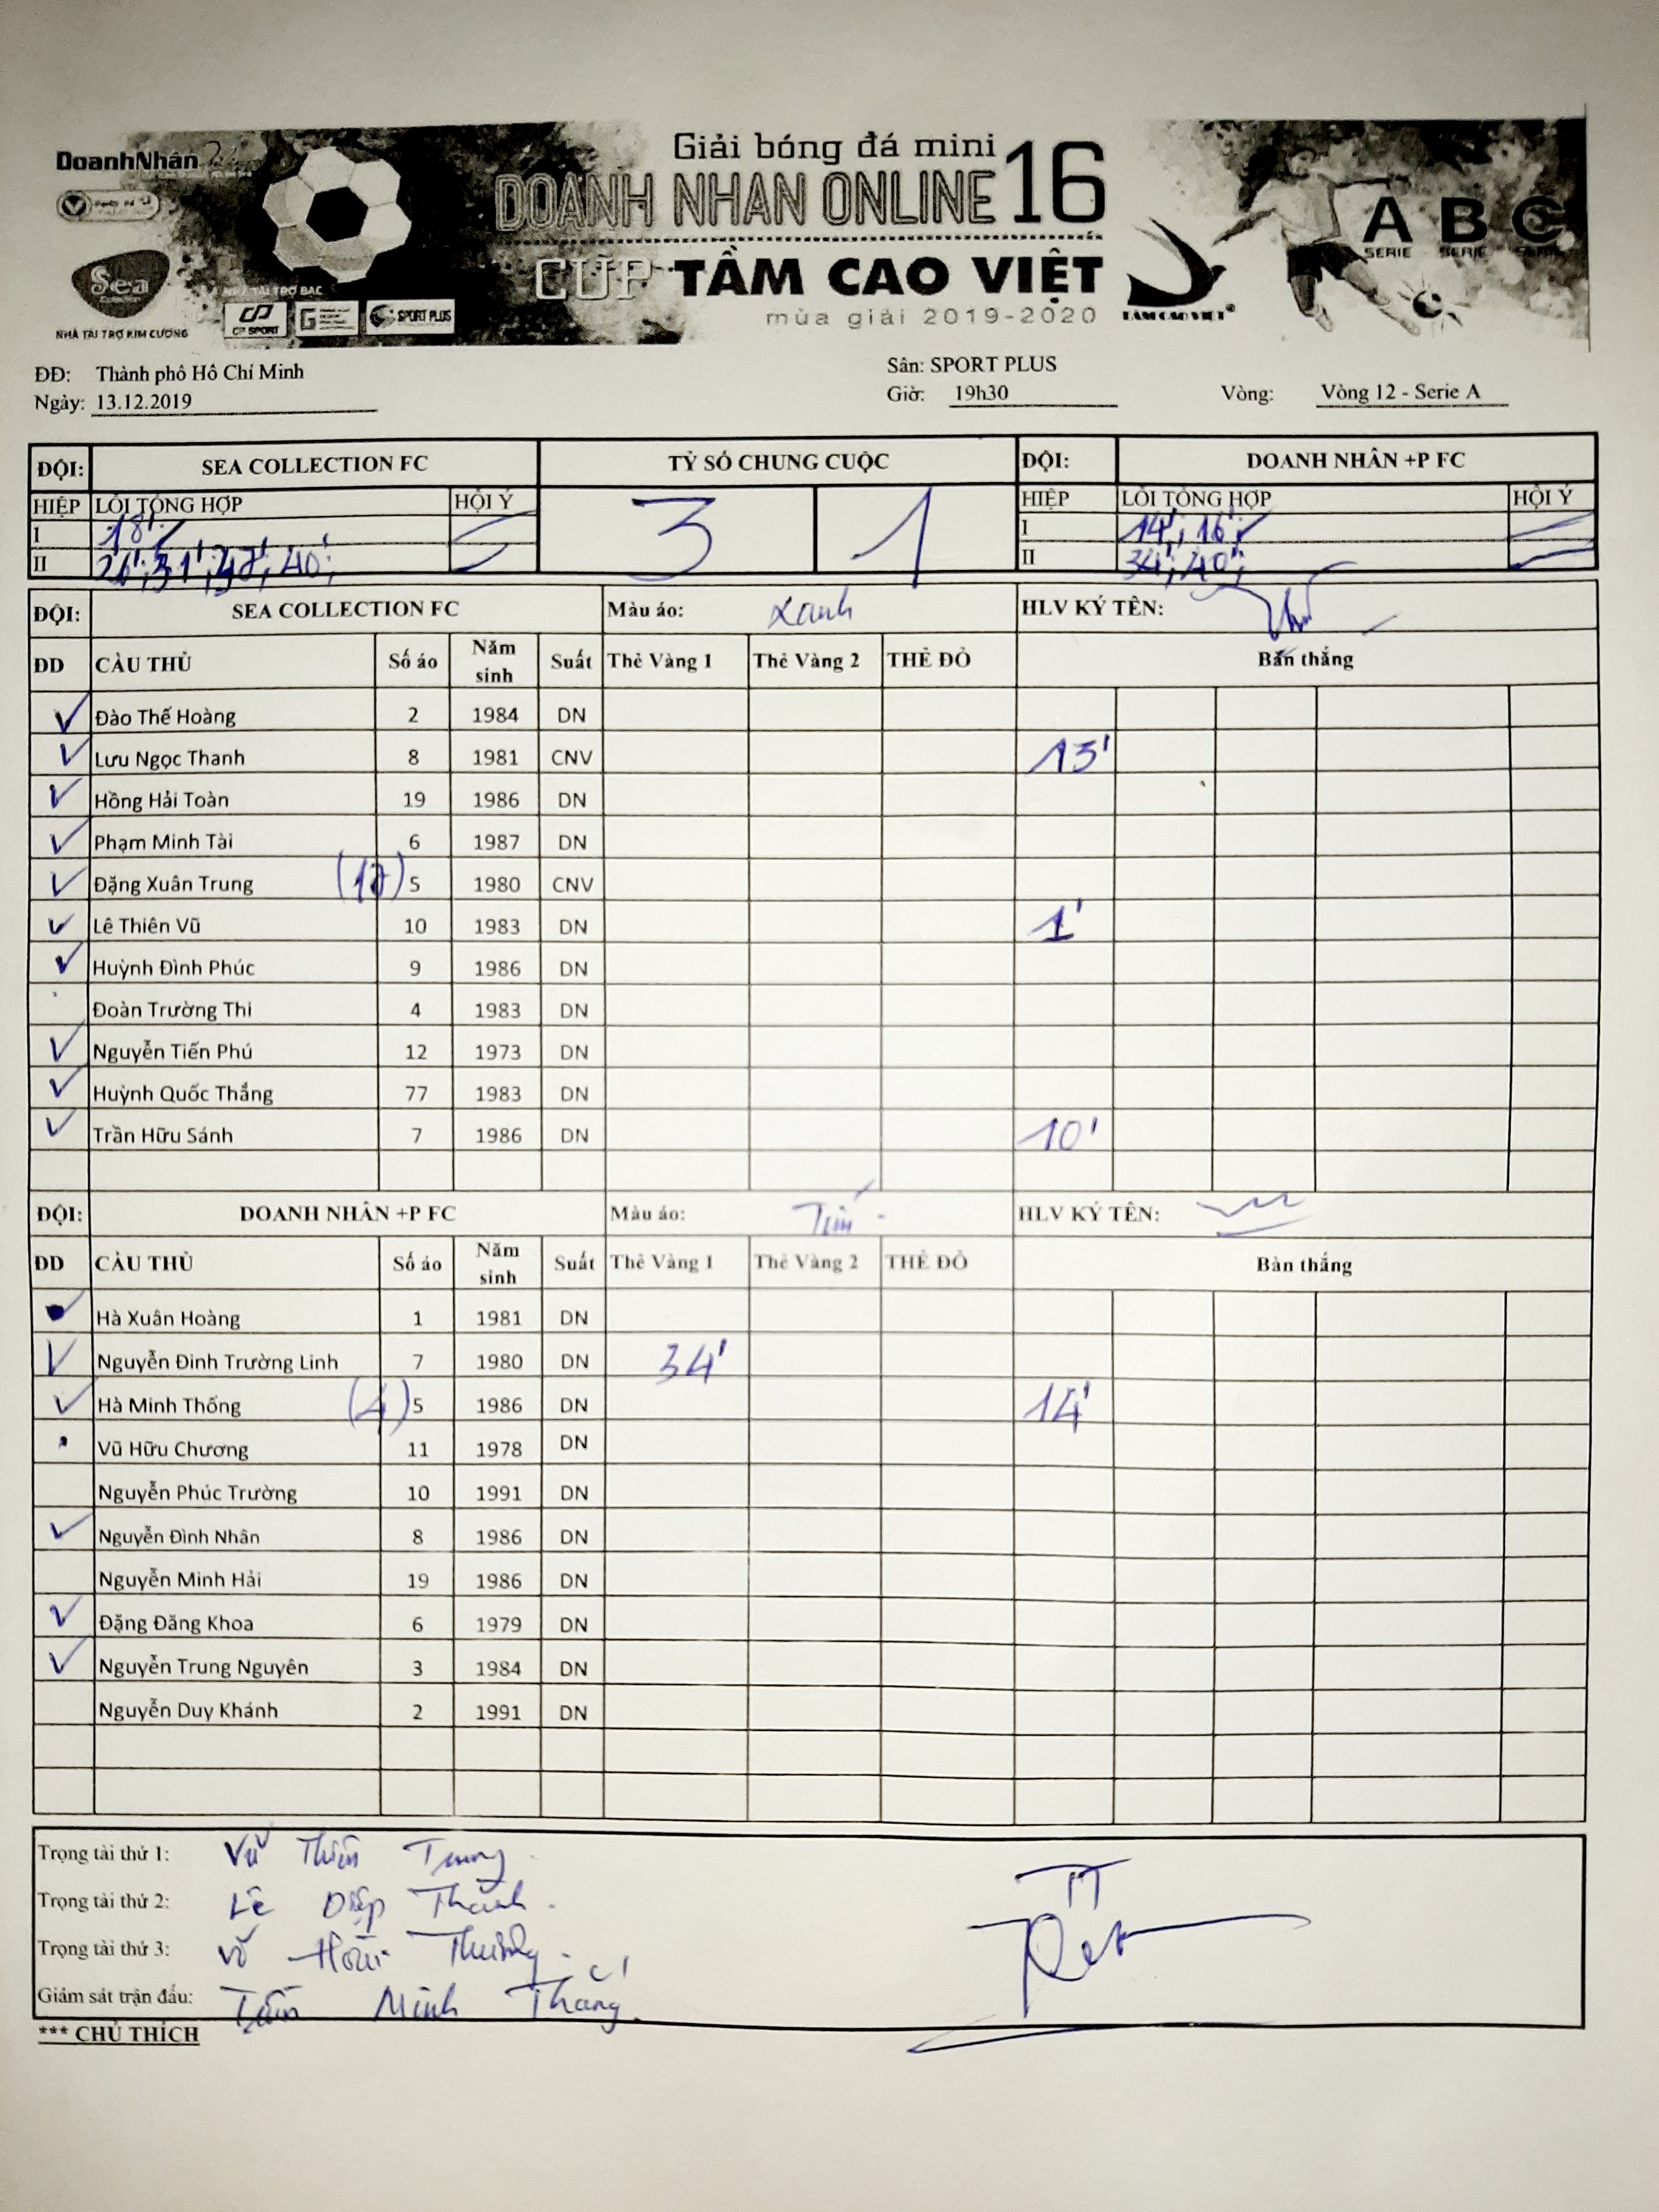 DoanhNhân
Giải bóng đá mini
DOANH NHAN ONLINE 16
CUP TẦM CAO VIỆT
mùa giải 2019-2020
TẦM CAO VIỆT
A B C
SERIE SERIE SERIE
Sea
NHÀ TÀI TRỢ KIM CƯƠNG
NHÀ TÀI TRỢ BẠC
CP SPORT
SPORT PLUS
ĐĐ: Thành phố Hồ Chí Minh
Sân: SPORT PLUS
Ngày: 13.12.2019 Giờ: 19h30 Vòng: Vòng 12 - Serie A
ĐỘI: SEA COLLECTION FC TỶ SỐ CHUNG CUỘC ĐỘI: DOANH NHÂN +P FC
HIỆP LỖI TỔNG HỢP HỘI Ý 3 1 HIỆP LỖI TỔNG HỢP HỘI Ý
I 18' I 14'; 16'
II 26'; 31'; 40'; II 34'; 40';
ĐỘI: SEA COLLECTION FC Màu áo: Xanh HLV KÝ TÊN:
ĐD CẦU THỦ Số áo Năm sinh Suất Thẻ Vàng 1 Thẻ Vàng 2 THẺ ĐỎ Bàn thắng
Đào Thế Hoàng 2 1984 DN
Lưu Ngọc Thanh 8 1981 CNV 13'
Hồng Hải Toàn 19 1986 DN
Phạm Minh Tài 6 1987 DN
Đặng Xuân Trung (17) 5 1980 CNV
Lê Thiên Vũ 10 1983 DN 1'
Huỳnh Đình Phúc 9 1986 DN
Đoàn Trường Thi 4 1983 DN
Nguyễn Tiến Phú 12 1973 DN
Huỳnh Quốc Thắng 77 1983 DN
Trần Hữu Sánh 7 1986 DN 10'
ĐỘI: DOANH NHÂN +P FC Màu áo: Tím HLV KÝ TÊN:
ĐD CẦU THỦ Số áo Năm sinh Suất Thẻ Vàng 1 Thẻ Vàng 2 THẺ ĐỎ Bàn thắng
Hà Xuân Hoàng 1 1981 DN
Nguyễn Đình Trường Linh 7 1980 DN 34'
Hà Minh Thống (4) 5 1986 DN 14'
Vũ Hữu Chương 11 1978 DN
Nguyễn Phúc Trường 10 1991 DN
Nguyễn Đình Nhân 8 1986 DN
Nguyễn Minh Hải 19 1986 DN
Đặng Đăng Khoa 6 1979 DN
Nguyễn Trung Nguyên 3 1984 DN
Nguyễn Duy Khánh 2 1991 DN
Trọng tài thứ 1: Vũ Trung
Trọng tài thứ 2: Lê Điệp Thành
Trọng tài thứ 3: Võ Hoài Thương
Giám sát trận đấu: Trần Minh Thắng
TT
*** CHÚ THÍCH